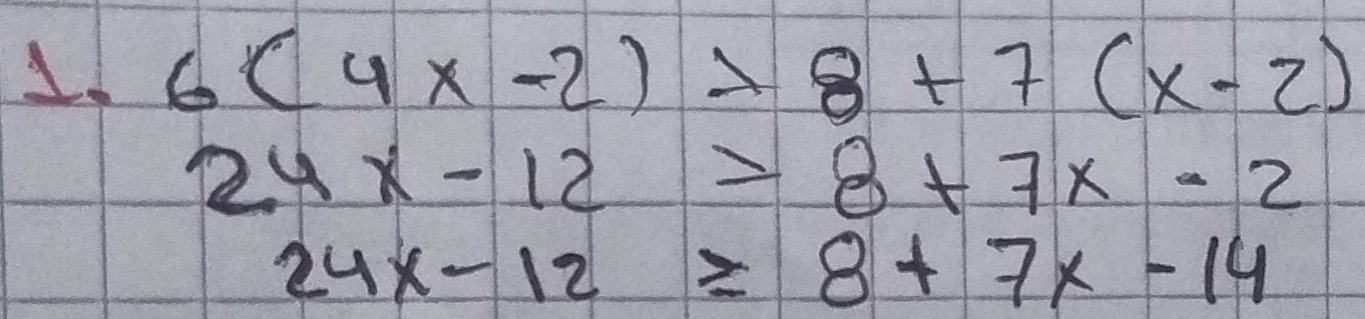 1. 6(4x-2) > 8+7(x-2)
24x-12 ≥ 8+7x-2
24x-12 ≥ 8+7x-14